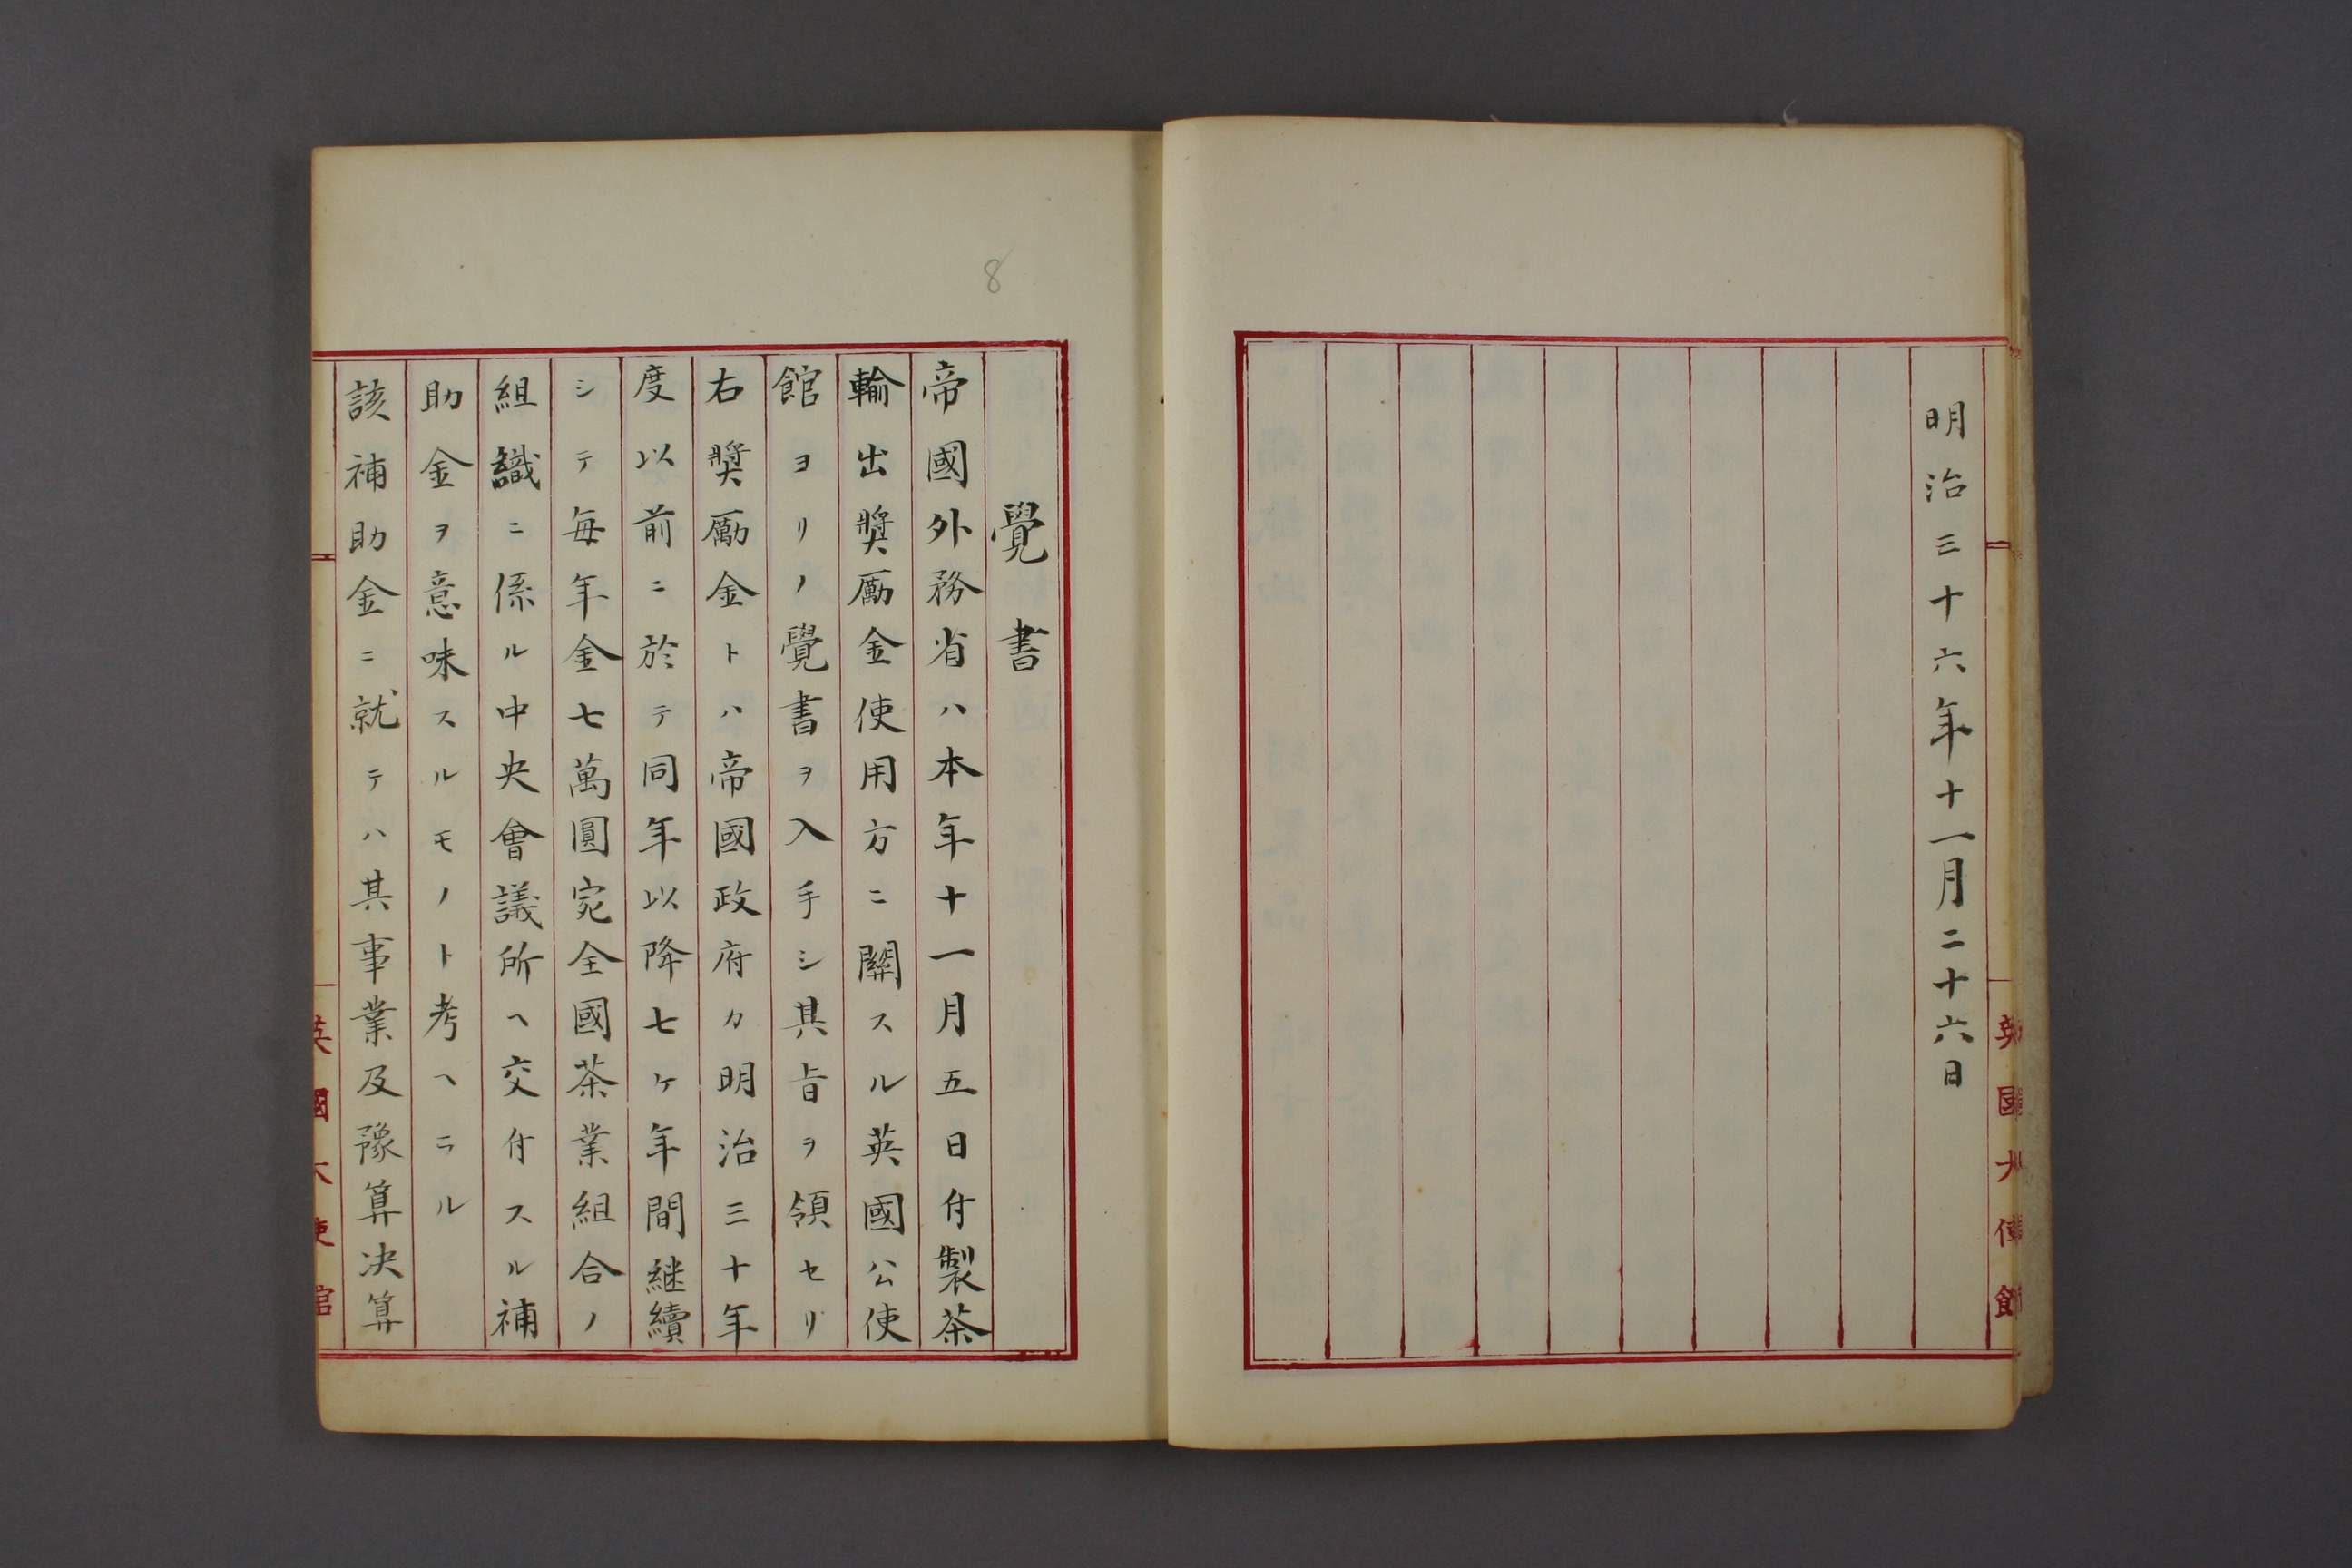 明治三十六年十一月二十六日
英國大使館
8
覺書
帝國外務省ハ本年十一月五日付製茶
輸出奬勵金使用方ニ關スル英國公使
館ヨリノ覺書ヲ入手シ其旨ヲ領セリ
右奬勵金トハ帝國政府カ明治三十年
度以前ニ於テ同年以降七ケ年間継續
シテ毎年金七萬圓宛全國茶業組合ノ
組織ニ係ル中央會議所ヘ交付スル補
助金ヲ意味スルモノト考ヘラル
該補助金ニ就テハ其事業及豫算决算
英國大使館